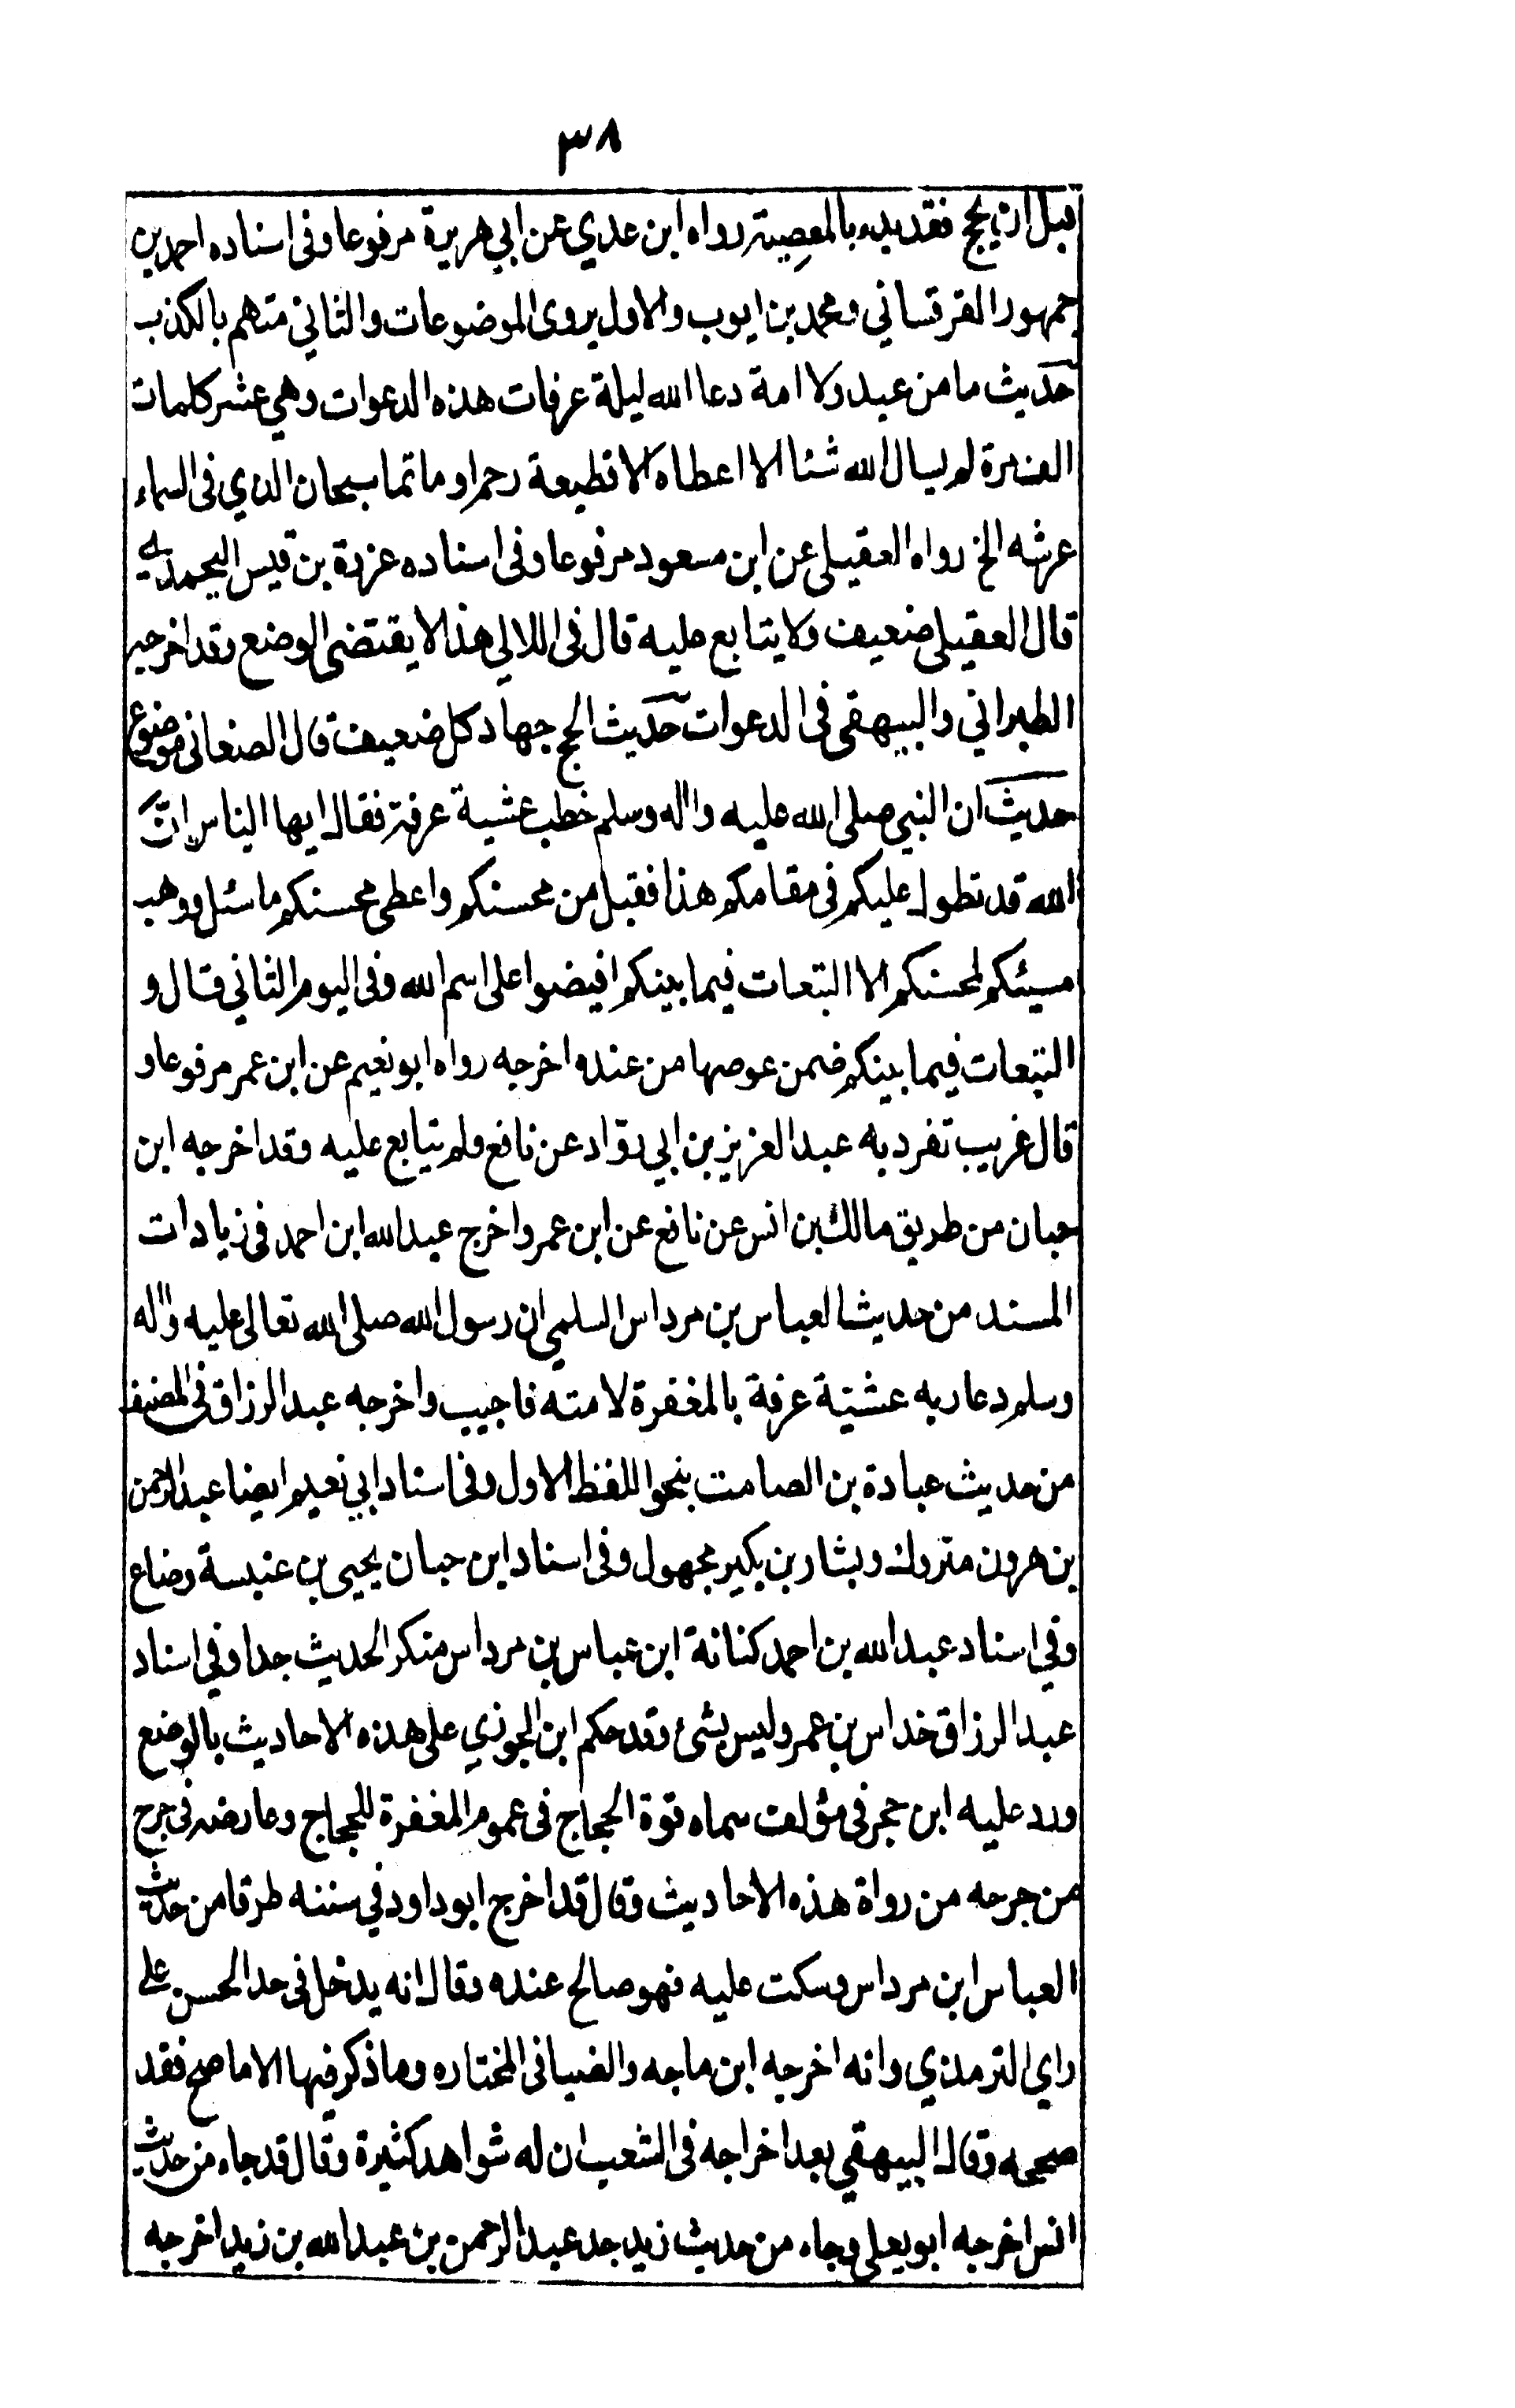 ٣٨
قبل ان يحج فقد بدء بالمعصية رواه ابن عدي عن ابي هريرة مرفوعا وفى اسناده احمد بن
جمهور القرقساني ومحمد بن ايوب والاول يروى الموضوعات والثاني متهم بالكذب
حديث ما من عبد ولا امة دعا الله ليلة عرفات هذه الدعوات وهي عشر كلمات
الف مرة لم يسال الله شئا الا اعطاه الا قطيعة رحم او ماثما سبحان الذي فى السماء
عرشه الخ رواه العقيلى عن ابن مسعود مرفوعا وفى اسناده عزرة بن قيس اليحمدي
قال العقيلى ضعيف ولا يتابع عليه قال فى اللالي هذا لا يقتضى الوضع وقد اخرجه
الطبراني والبيهقى فى الدعوات حديث الحج جهاد كل ضعيف قال الصنعانى موضوع
حديث ان النبي صلى الله عليه واله وسلم خطب عشية عرفة فقال ايها الناس انّ
الله قد تطول عليكم فى مقامكم هذا فقبل من محسنكم واعطى محسنكم ما سئل ووهب
مسيئكم لمحسنكم الا التبعات فيما بينكم افيضوا على اسم الله وفى اليوم الثاني قال و
التبعات فيما بينكم ضمن عوضها من عنده اخرجه رواه ابو نعيم عن ابن عمر مرفوعا و
قال غريب تفرد به عبد العزيز بن ابي روّاد عن نافع ولم يتابع عليه وقد اخرجه ابن
حبان من طريق مالك بن انس عن نافع عن ابن عمر واخرج عبد الله ابن احمد فى زيادات
المسند من حديث العباس بن مرداس السلمي ان رسول الله صلى الله تعالى عليه واله
وسلم دعا ربه عشيّة عرفة بالمغفرة لامته فاجيب واخرجه عبد الرزاق فى المصنف
من حديث عبادة بن الصامت بنحو اللفظ الاول وفى اسناد ابي نعيم ايضا عبد الرحمن
بن هرون متروك وبشار بن بكير مجهول وفى اسناد ابن حبان يحيى بن عنبسة وضاع
وفي اسناد عبد الله بن احمد كنانة ابن عباس بن مرداس منكر الحديث جدا وفي اسناد
عبد الرزاق خداس بن عمر وليس بشئ وقد حكم ابن الجوزي على هذه الاحاديث بالوضع
ورد عليه ابن حجر فى مؤلف سماه قوة الحجاج فى عموم المغفرة للحجاج وعارضه فى جرح
من جرحه من رواة هذه الاحاديث وقال قد اخرج ابو داود في سننه طرقا من حديث
العباس ابن مرداس وسكت عليه فهو صالح عنده وقال انه يدخل فى حد الحسن على
راي الترمذي وانه اخرجه ابن ماجه والضيا فى المختاره وما ذكر فيها الا ما صح فقد
صححه وقال البيهقي بعد اخراجه فى الشعب ان له شواهد كثيرة وقال قد جاء من حديث
انس اخرجه ابو يعلى وجاء من حديث زيد جد عبد الرحمن بن عبد الله بن زيد اخرجه